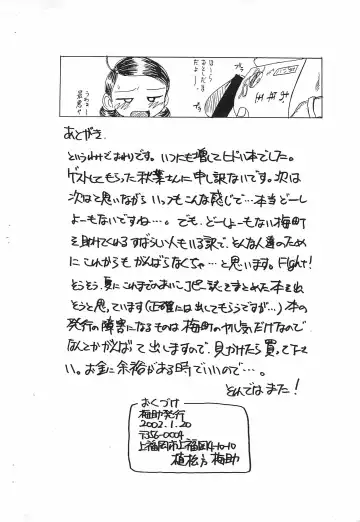 あとがき
というわけでおわりです。いつにも増してヒドい本でした。
ゲストしてもらった秋葉さんに申し訳ないです。次は
次はと思いながらいっつもこんな感じで…本当どーし
よーもないですね…。でも、どーしよーもない梅町
を助けてくれるすばらしい人もいる訳で、そんな人達のため
にこれからもがんばらなくちゃ…と思います。Fight!
そうそう、夏にこれまでのおまけ、コピー誌をまとめた本を出
そうと思っています(正確には出してもらうですが…)本の
発行の障害になるものは梅町のやる気だけなので
なんとかがんばって出しますので、見かけたら買って下さ
い。お金に余裕がある時でいいので…。
それではまた!
おくづけ
梅助発行
2002.1.20
〒356-0004
上福岡市上福岡4-10-10
植松方 梅助